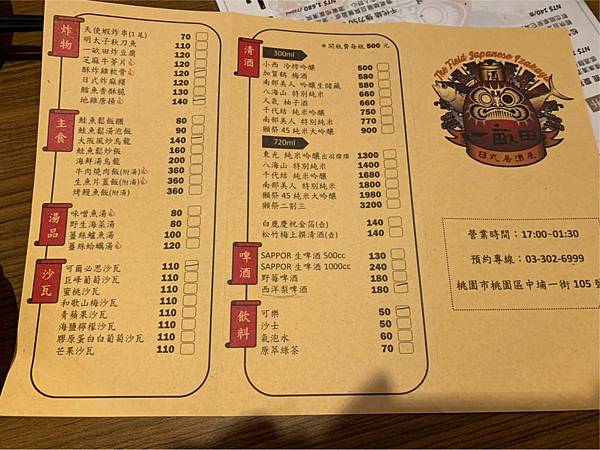 炸物
天使蝦炸串(1尾) 70
明太子秋刀魚 110
一畝田炸豆腐 80
芝麻牛蒡片 120
酥炸雞軟骨 120
日式炸麻糬 120
鱈魚香酥脆 130
地雞唐揚 140
主食
鮭魚鬆飯糰 80
鮭魚鬆湯泡飯 90
大阪風炒烏龍 140
鮭魚鬆炒飯 160
海鮮湯烏龍 200
牛肉燒肉飯(附湯) 360
生魚片蓋飯(附湯) 360
烤鰻魚飯(附湯) 360
湯品
味噌魚湯 80
野生海菜湯 80
薑絲鱸魚湯 100
薑絲蛤蠣湯 120
沙瓦
可爾必思沙瓦 110
巨峰葡萄沙瓦 110
蜜桃沙瓦 110
和歌山梅沙瓦 110
青蘋果沙瓦 110
海鹽檸檬沙瓦 110
膠原蛋白白葡萄沙瓦 110
芒果沙瓦 110
清酒
300ml
*開瓶費每瓶 500 元
小西 冷榨吟釀 500
加賀鶴 梅酒 580
南部美人 吟釀生儲藏 580
八海山 特別純米 660
人氣 柚子酒 660
千代結 純米吟釀 750
南部美人 特別純米 770
獺祭 45 純米大吟釀 900
720ml
東光 純米吟釀出羽燦燦 1300
八海山 特別純米 1400
千代結 純米吟釀 1680
南部美人 特別純米 1800
獺祭 45 純米大吟釀 1930
獺祭二割三 3200
白鹿慶祝金箔(壺) 140
松竹梅上撰清酒(壺) 140
啤酒
SAPPOR 生啤酒 500cc 130
SAPPOR 生啤酒 1000cc 240
野莓啤酒 180
西洋梨啤酒 180
飲料
可樂 50
沙士 50
氣泡水 60
原萃綠茶 70
The Field Japanese Izakaya
酒
一畝田
日式居酒屋
營業時間：17:00~01:30
預約專線：03-302-6999
桃園市桃園區中埔一街 105 號